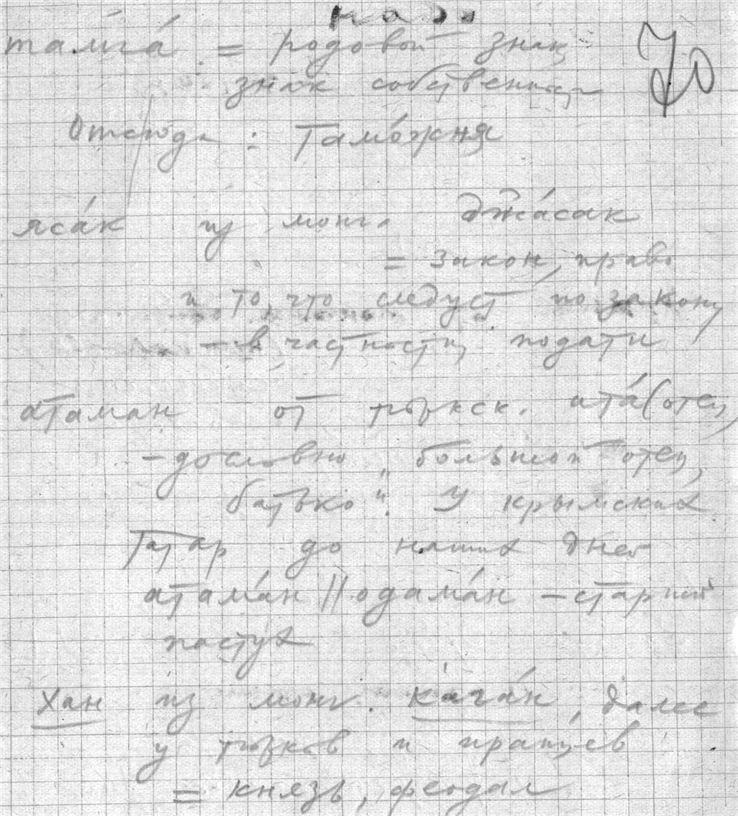 70
тамга́ = родовой знак
знак собственности
Отсюда: Тамо́жня
яса́к из монг. джа́сак
= закон, право
и то, что следует по закону
– в частности, подати
атаман от тюркск. ата́ (отец)
– дословно „большой отец,
батько". У крымских
татар до наших дней
атама́н || одама́н – старший
пастух
Хан из монг. кага́н, далее
у тюрков и иранцев
= князь, феодал